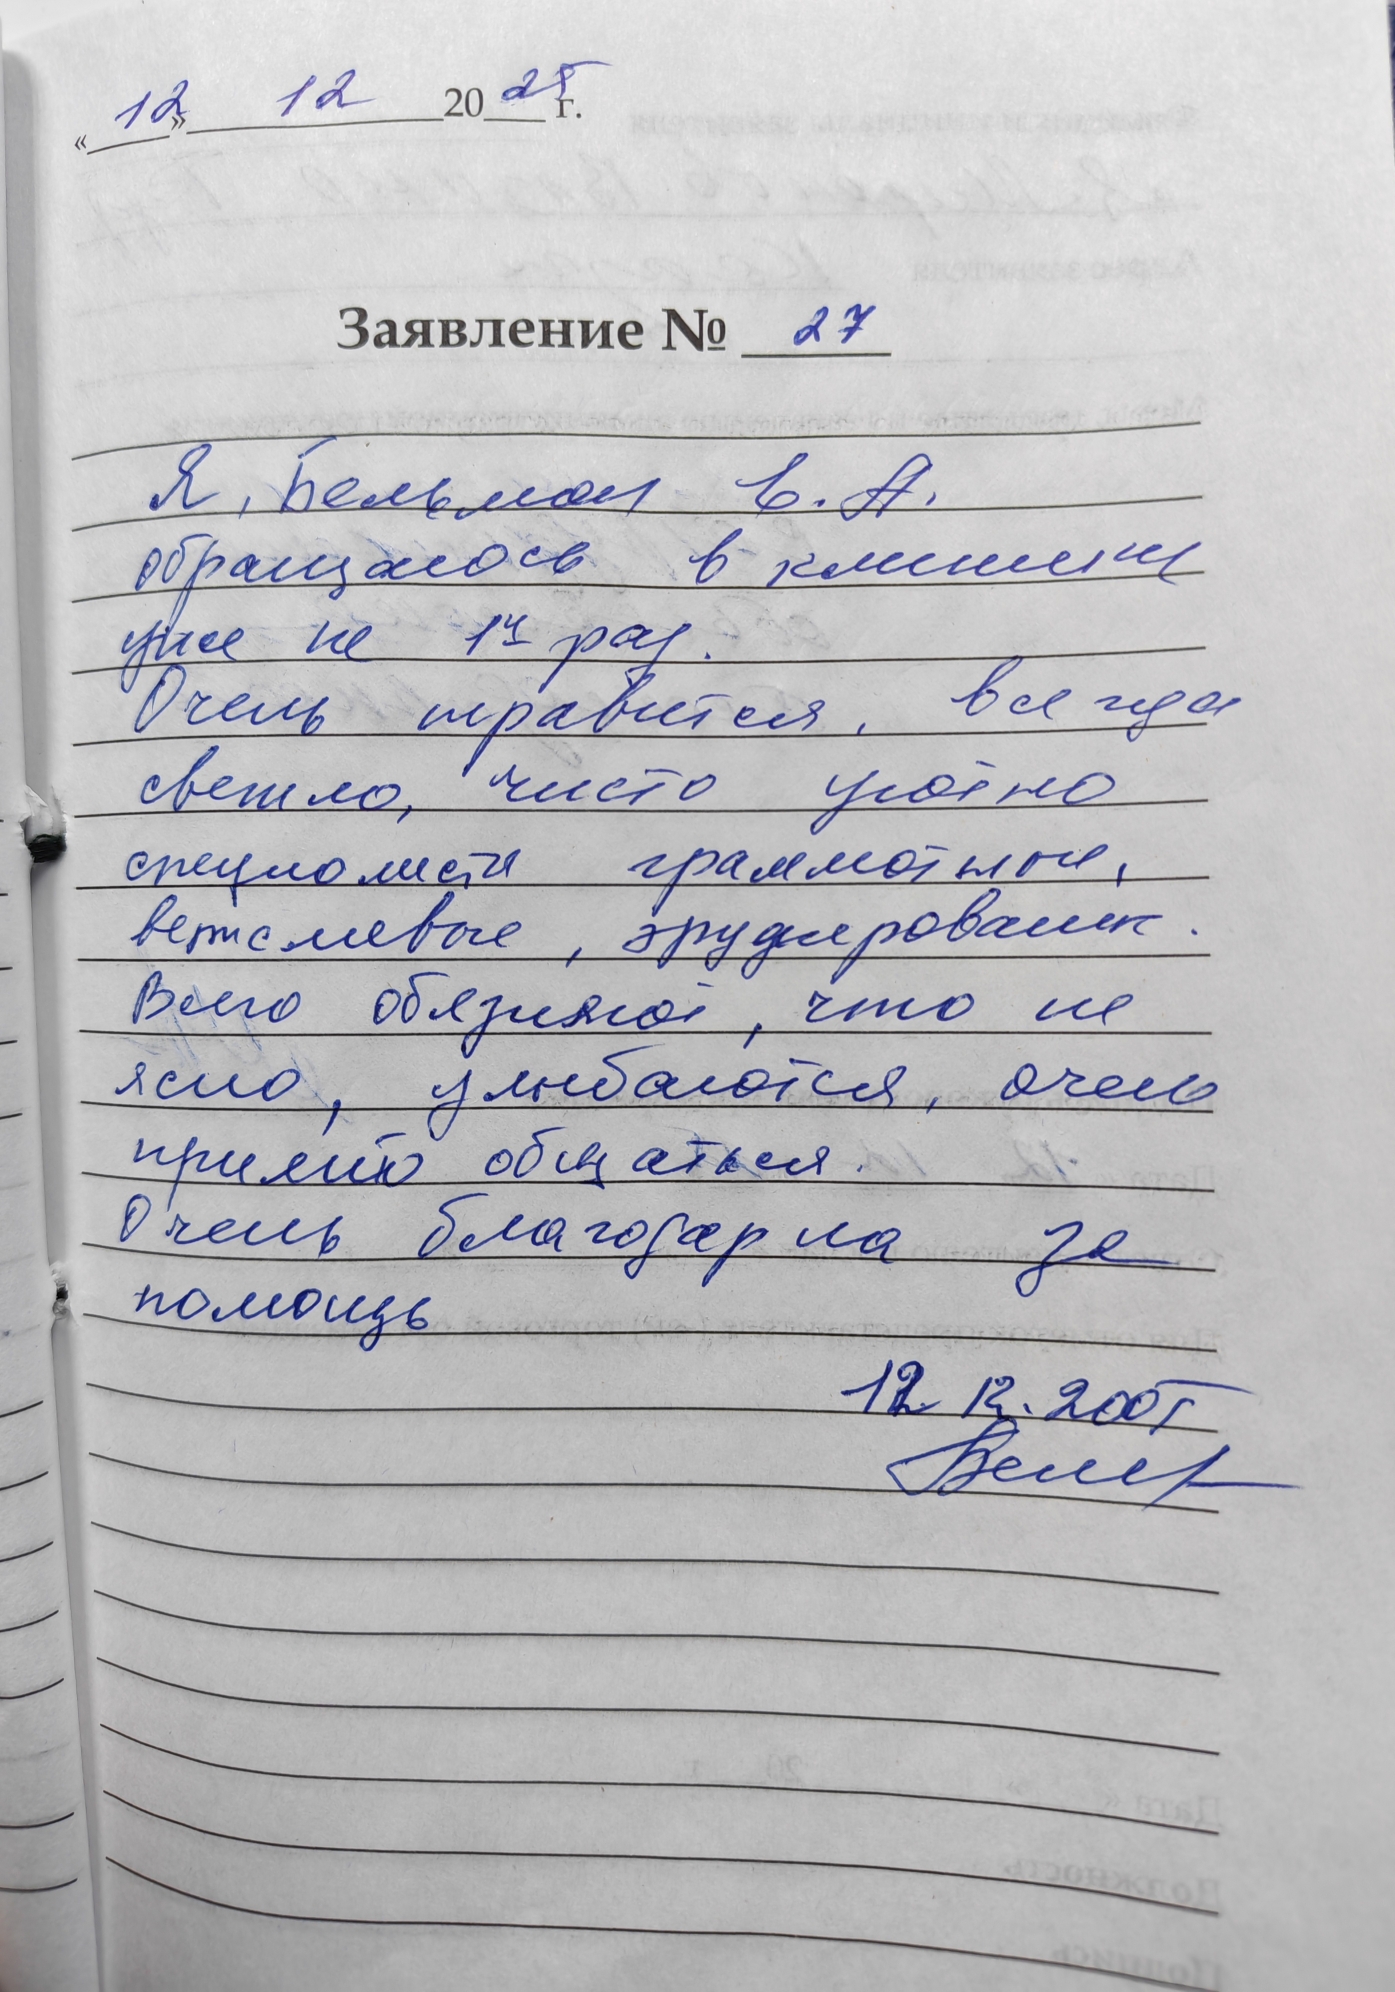 «12» 12 2025 г.
Заявление № 27
Я, Бельман Е. А.
обращаюсь в клинику
уже не 1й раз.
Очень нравится, всегда
светло, чисто уютно
специалисты грамотные,
вежливые, эрудирован.
Всего обязяют, что не
ясно, улыбаются, очень
приятно общаться.
Очень благодарна за
помощь
12.12.2005